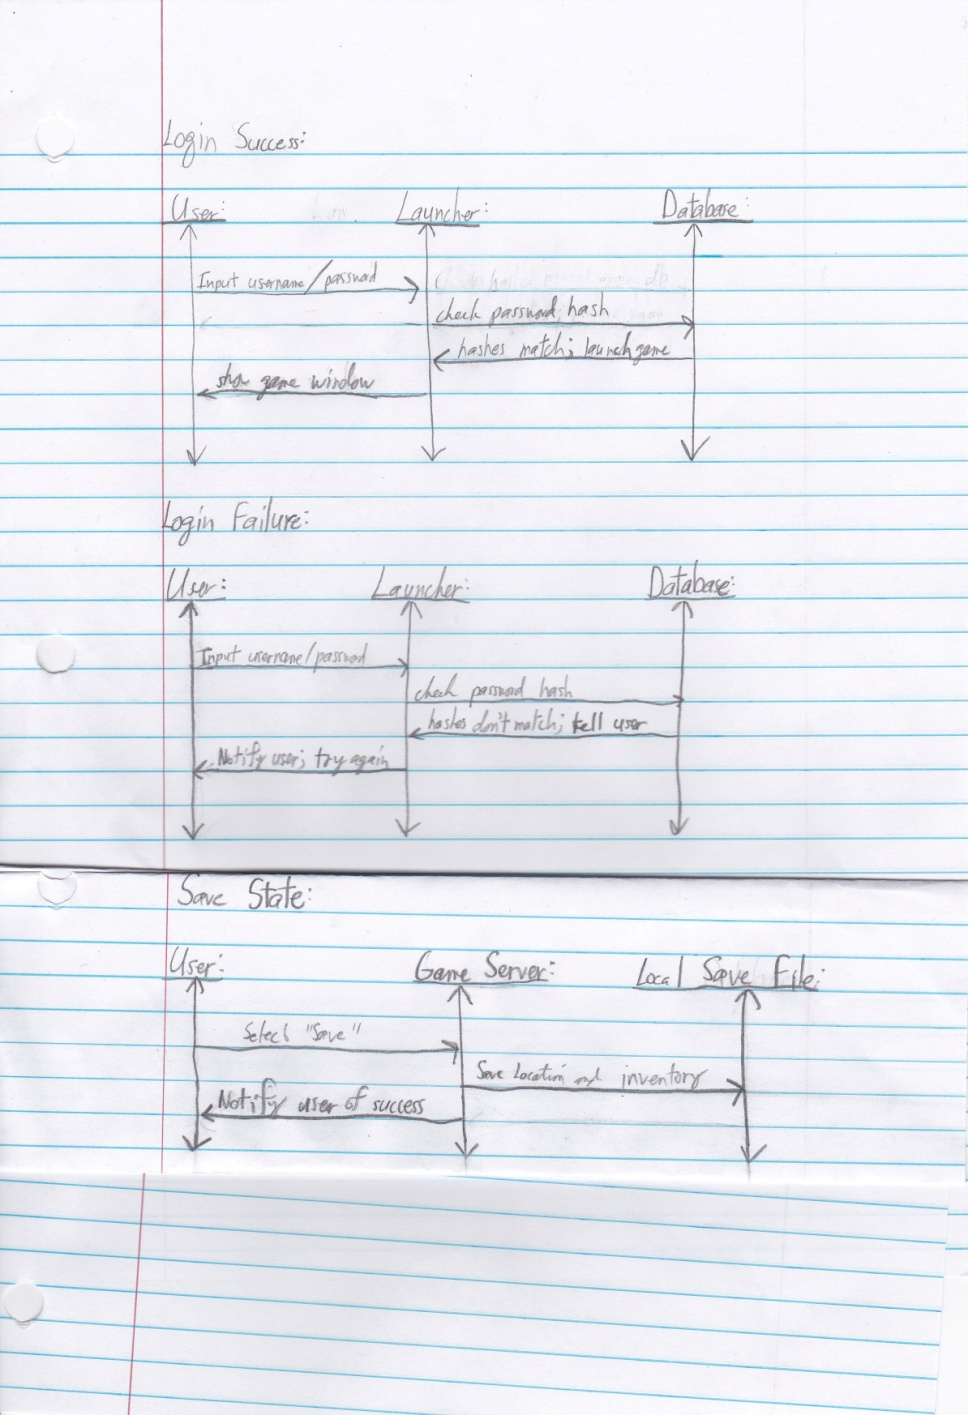 Login Success:
User: Launcher: Database:
Input username/password
check password hash
hashes match; launch game
show game window
Login Failure:
User: Launcher: Database:
Input username/password
check password hash
hashes don't match; tell user
Notify user; try again
Save State:
User: Game Server: Local Save File:
Select "Save"
Save Location and inventory
Notify user of success